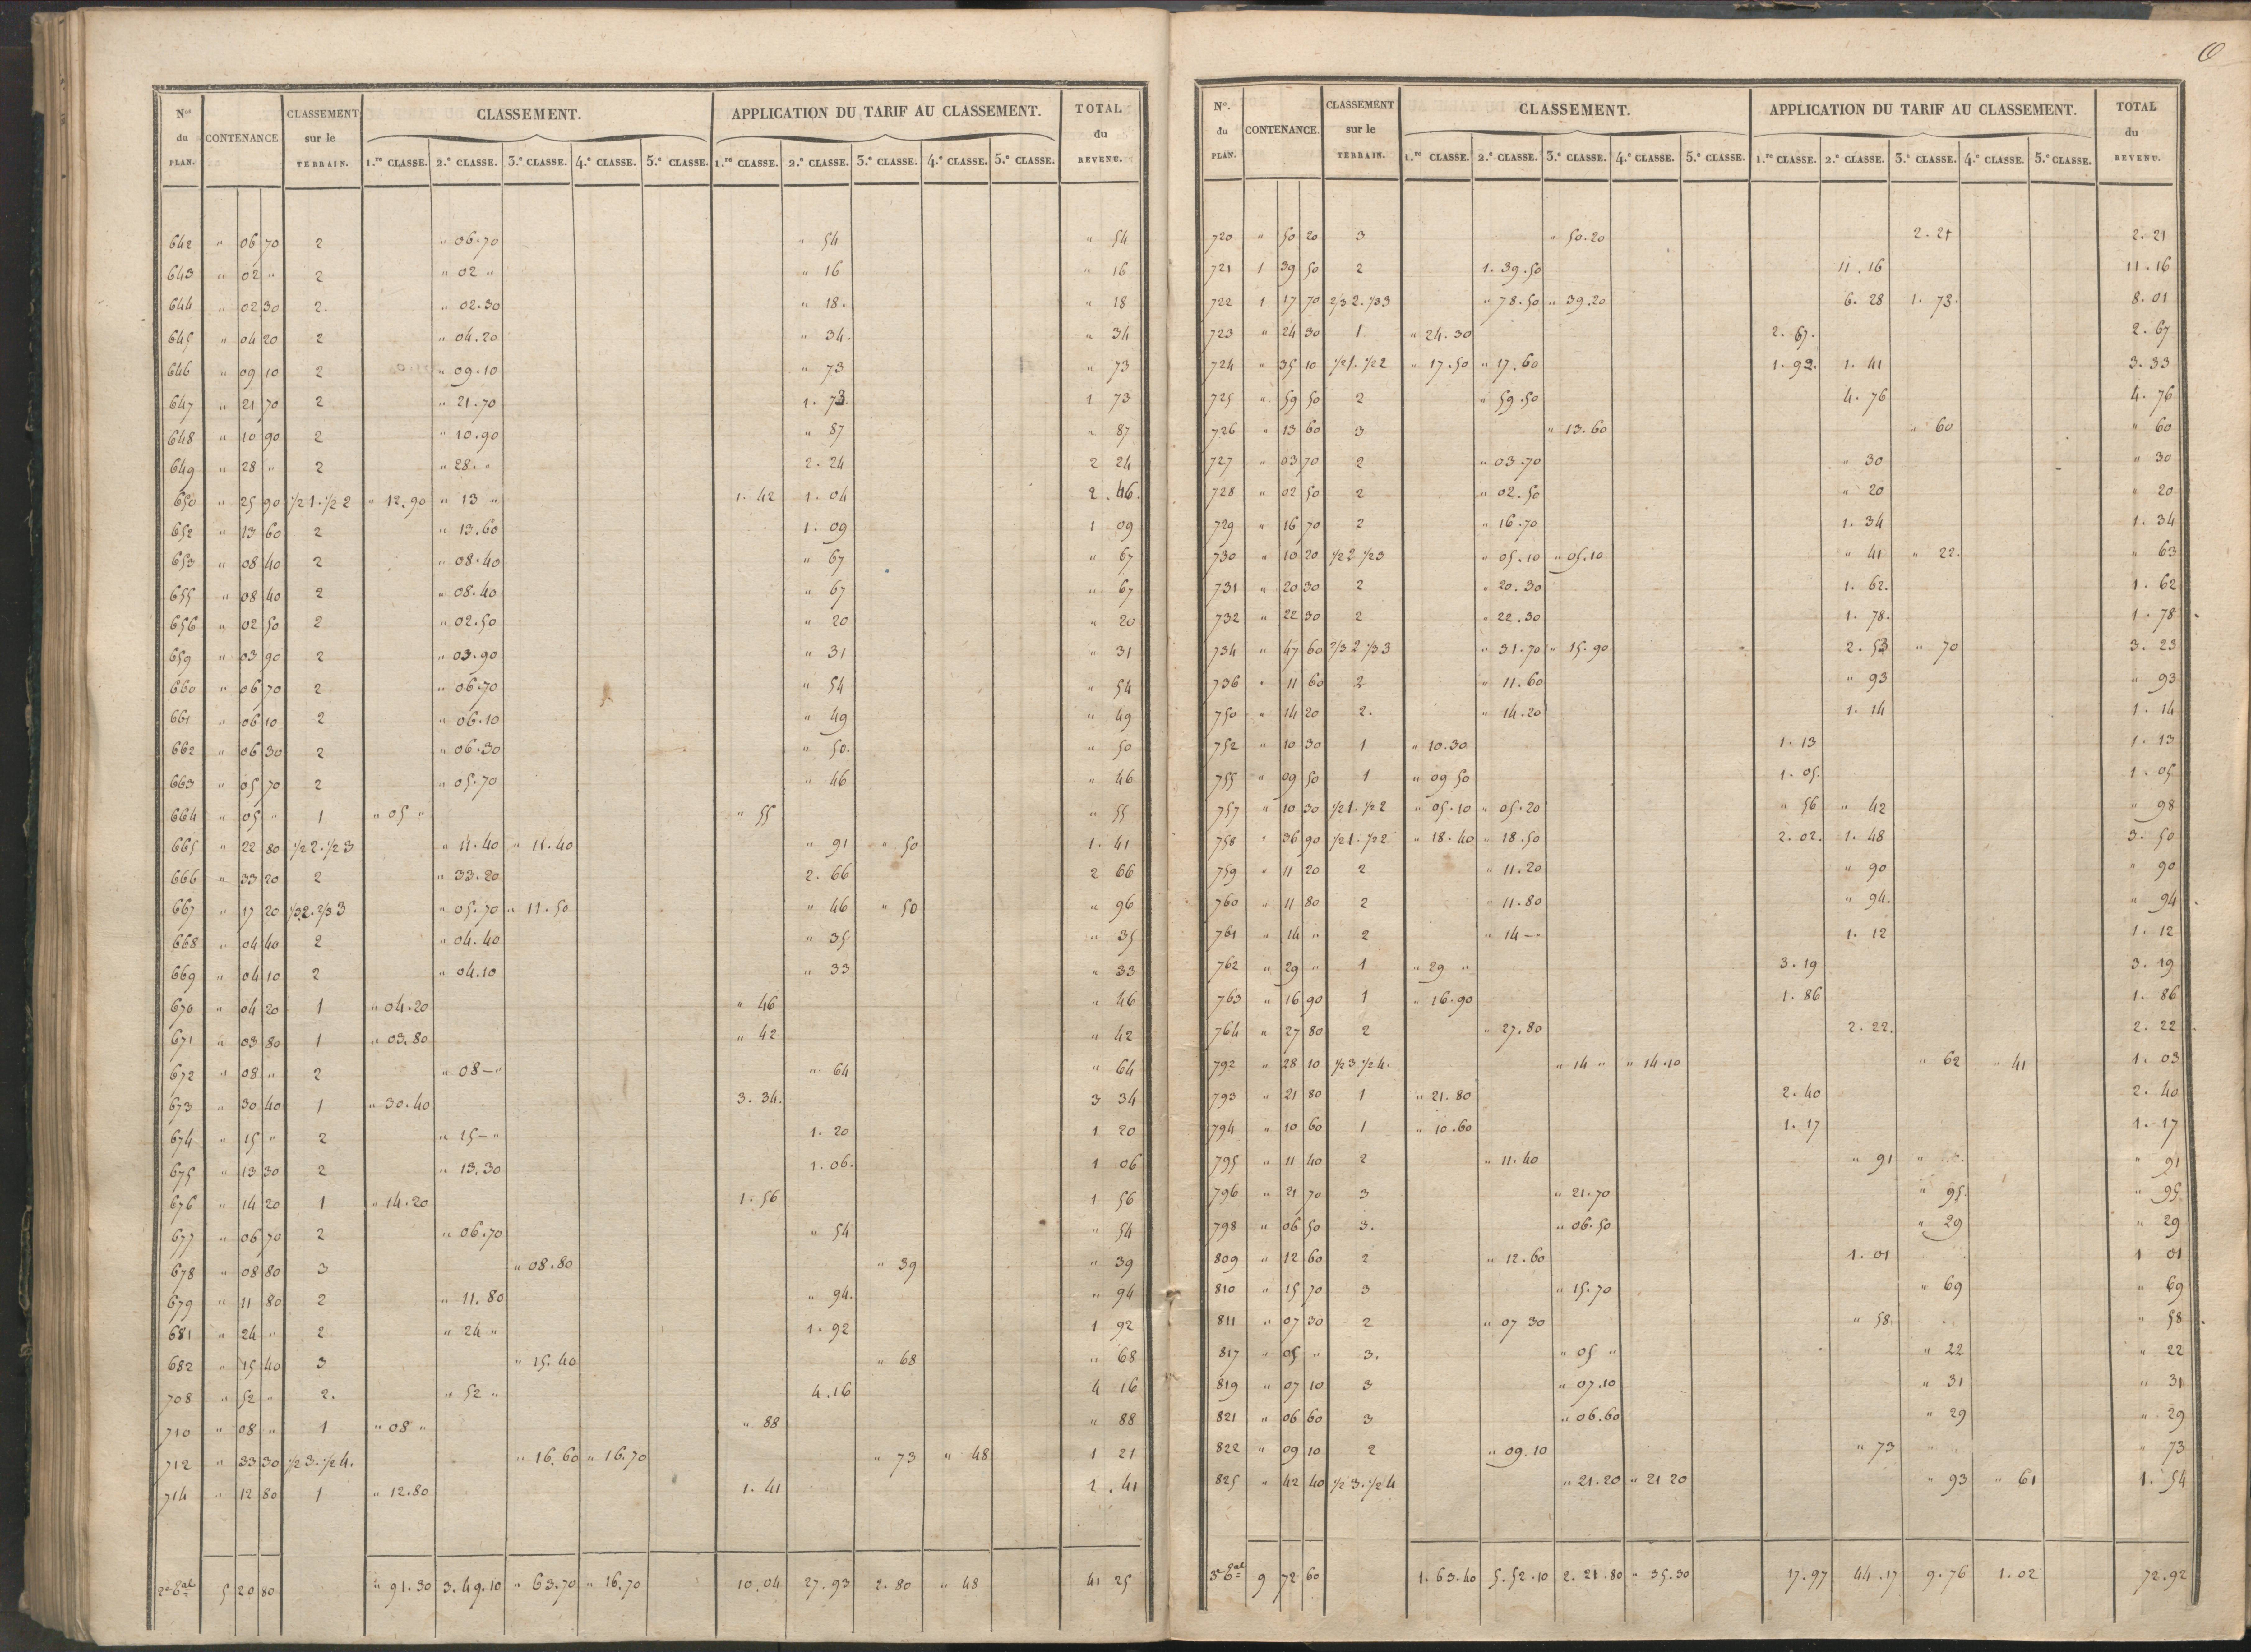 O
N.os du PLAN. CONTENANCE CLASSEMENT sur le TERRAIN. CLASSEMENT. APPLICATION DU TARIF AU CLASSEMENT. TOTAL du REVENU.
1.re CLASSE. 2.e CLASSE. 3.e CLASSE. 4.e CLASSE. 5.e CLASSE. 1.re CLASSE. 2.e CLASSE. 3.e CLASSE. 4.e CLASSE. 5.e CLASSE.
642 " 06 70 2 " 06.70 " 54 " 54
643 " 02 " 2 " 02 " " 16 " 16
644 " 02 30 2. " 02.30 " 18. " 18
645 " 04 20 2 " 04.20 " 34. " 34
646 " 09 10 2 " 09.10 " 73 " 73
647 " 21 70 2 " 21.70 1. 73. 1 73
648 " 10 90 2 " 10.90 " 87 " 87
649 " 28 " 2 " 28. " 2. 24 2 24
650 " 25 90 1/2 1. 1/2 2 " 12.90 " 13 " 1. 42 1. 04 2. 46.
652 " 13 60 2 " 13.60 1. 09 1 09
653 " 08 40 2 " 08.40 " 67 " 67
655 " 08 40 2 " 08.40 " 67 " 67
656 " 02 50 2 " 02.50 " 20 " 20
659 " 03 90 2 " 03.90 " 31 " 31
660 " 06 70 2 " 06.70 " 54 " 54
661 " 06 10 2 " 06.10 " 49 " 49
662 " 06 30 2 " 06.30 " 50. " 50
663 " 05 70 2 " 05.70 " 46 " 46
664 " 05 " 1 " 05 " " 55 " 55
665 " 22 80 1/2 2. 1/2 3 " 11.40 " 11.40 " 91 " 50 1. 41
666 " 33 20 2 " 33.20 2. 66 2 66
667 " 17 20 1/3 2. 2/3 3 " 05.70 " 11.50 " 46 " 50 " 96
668 " 04 40 2 " 04.40 " 35 " 35
669 " 04 10 2 " 04.10 " 33 " 33
670 " 04 20 1 " 04.20 " 46 " 46
671 " 03 80 1 " 03.80 " 42 " 42
672 " 08 " 2 " 08 - " " 64 " 64
673 " 30 40 1 " 30.40 3. 34. 3 34
674 " 15 " 2 " 15 - " 1. 20 1 20
675 " 13 30 2 " 13.30 1. 06. 1 06
676 " 14 20 1 " 14.20 1. 56 1 56
677 " 06 70 2 " 06.70 " 54 " 54
678 " 08 80 3 " 08.80 " 39 " 39
679 " 11 80 2 " 11.80 " 94. " 94
681 " 24 " 2 " 24 " 1. 92 1 92
682 " 15 40 3 " 15.40 " 68 " 68
708 " 52 " 2. " 52 " 4.16 4 16
710 " 08 " 1 " 08 " " 88 " 88
712 " 33 30 1/2 3. 1/2 4. " 16.60 " 16.70 " 73 " 48 1 21
714 " 12 80 1 " 12.80 1. 41 1. 41
2e Cal 5 20 80 " 91.30 3.49.10 " 63.70 " 16.70 10.04 27.93 2.80 " 48 41 25
N.o du PLAN. CONTENANCE. CLASSEMENT sur le TERRAIN. CLASSEMENT. APPLICATION DU TARIF AU CLASSEMENT. TOTAL du REVENU.
1.re CLASSE. 2.e CLASSE. 3.e CLASSE. 4.e CLASSE. 5.e CLASSE. 1.re CLASSE. 2.e CLASSE. 3.e CLASSE. 4.e CLASSE. 5.e CLASSE.
720 " 50 20 3 " 50.20 2. 21 2. 21
721 1 39 50 2 1. 39.50 11.16 11.16
722 1 17 70 2/3 2. 1/3 3 " 78.50 " 39.20 6. 28 1. 73. 8. 01
723 " 24 30 1 " 24.30 2. 67. 2. 67
724 " 35 10 1/2 1. 1/2 2 " 17.50 " 17.60 1. 92. 1. 41 3. 33
725 " 59 50 2 " 59.50 4. 76 4. 76
726 " 13 60 3 " 13.60 " 60 " 60
727 " 03 70 2 " 03.70 " 30 " 30
728 " 02 50 2 " 02.50 " 20 " 20
729 " 16 70 2 " 16.70 1. 34 1. 34
730 " 10 20 1/2 2 1/2 3 " 05.10 " 05.10 " 41 " 22. " 63
731 " 20 30 2 " 20.30 1. 62. 1. 62
732 " 22 30 2 " 22.30 1. 78. 1. 78
734 " 47 60 2/3 2 1/3 3 " 31.70 " 15.90 2. 53 " 70 3. 23
736 " 11 60 2 " 11.60 " 93 " 93
750 " 14 20 2. " 14.20 1. 14 1. 14
752 " 10 30 1 " 10.30 1. 13 1. 13
755 " 09 50 1 " 09 50 1. 05. 1. 05
757 " 10 30 1/2 1. 1/2 2 " 05.10 " 05.20 " 56 " 42 " 98
758 " 36 90 1/2 1. 1/2 2 " 18.40 " 18.50 2. 02. 1. 48 3. 50
759 " 11 20 2 " 11.20 " 90 " 90
760 " 11 80 2 " 11.80 " 94. " 94
761 " 14 " 2 " 14 - " 1. 12 1. 12
762 " 29 " 1 " 29 " 3. 19 3. 19
763 " 16 90 1 " 16.90 1. 86 1. 86
764 " 27 80 2 " 27.80 2. 22. 2. 22
792 " 28 10 1/2 3. 1/2 4. " 14 " " 14.10 " 62 " 41 1. 03
793 " 21 80 1 " 21.80 2. 40 2. 40
794 " 10 60 1 " 10.60 1. 17 1. 17
795 " 11 40 2 " 11.40 " 91 " " 91
796 " 21 70 3 " 21.70 " 95. " 95
798 " 06 50 3. " 06.50 " 29 " 29
809 " 12 60 2 " 12.60 1. 01 1 01
810 " 15 70 3 " 15.70 " 69 " 69
811 " 07 30 2 " 07 30 " 58 " 58
817 " 05 " 3. " 05 " " 22 " 22
819 " 07 10 3 " 07.10 " 31 " 31
821 " 06 60 3 " 06.60 " 29 " 29
822 " 09 10 2 " 09.10 " 73 " 73
825 " 42 40 1/2 3. 1/2 4 " 21.20 " 21 20 " 93 " 61 1. 54
3e Cal 9 72 60 1.63.40 5.52.10 2.21.80 " 35.30 17.97 44.17 9.76 1.02 72.92